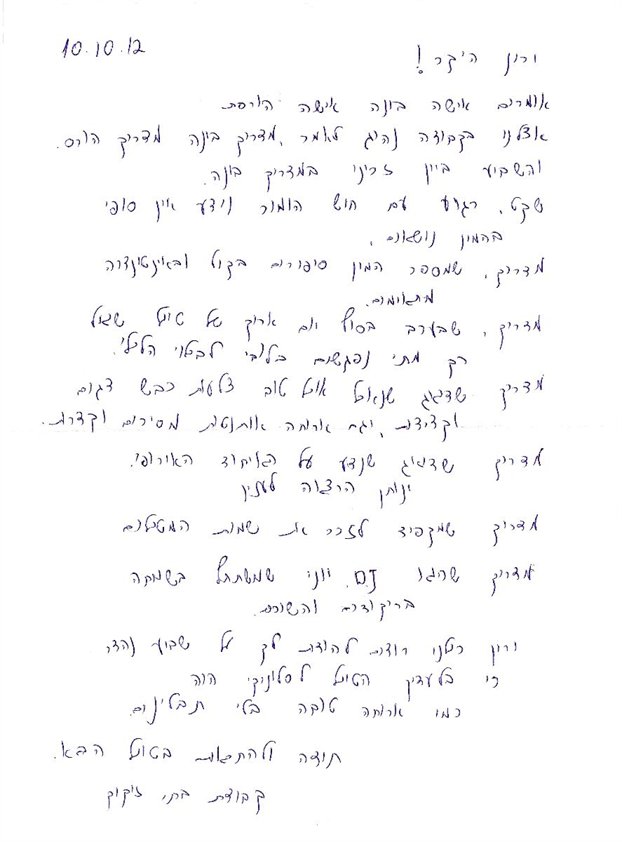 10.10.12
ירון היקר!
אומרים אישה בונה אישה הורסת
אצלנו בקבוצה נהוג לאמר, מדריך בונה מדריך הורס.
והשביע ביין זכינו במדריך בונה.
שקט, רגוע עם חוש הומור וידע אין סופי
בהמון נושאים,
מדריך, שמספר המון סיפורים בקול ובאינטונציה
מתאימים.
מדריך, שבערב בסוף יום ארוך של טיול שאל
רק מתי נפגשים בלובי לבילוי הלילי.
מדריך שדאג שנאכל אוכל טוב צלעות כבש דגים
וקציצות, וגם ארוחה אותנטית מסירים וקדרות.
מדריך שדאג שנדע על האיחוד האירופי,
ונותן הרצאה לעניין
מדריך שמקפיד לזכר את שמות המטיילים
מדריך שהגו D.J. יווני שמשתתף בשמחה
בריקודים והשירים.
ירון כולנו רוצים להודות לך על שבוע נהדר
כי בלעדיך הטיול לסלוניקי היה
כמו ארוחה טובה בלי תבלינים.
תודה ולהתראות בטיול הבא.
קבוצת בתי זיקוק